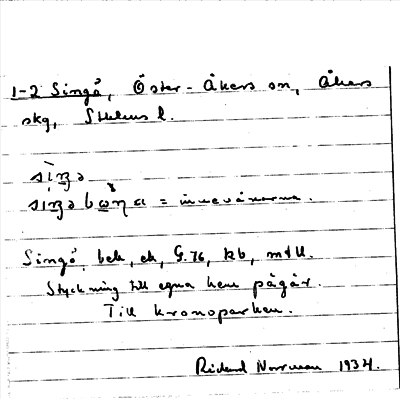 1-2 Singö, Öster-Åkers sn, Åkers
skg, Sthlms l.
= innevånarna.
Singö, bek, ek, G.76, kb, mtl.
Styckning till egna hem pågår.
Till kronoparken.
Rickard Norrman 1934.